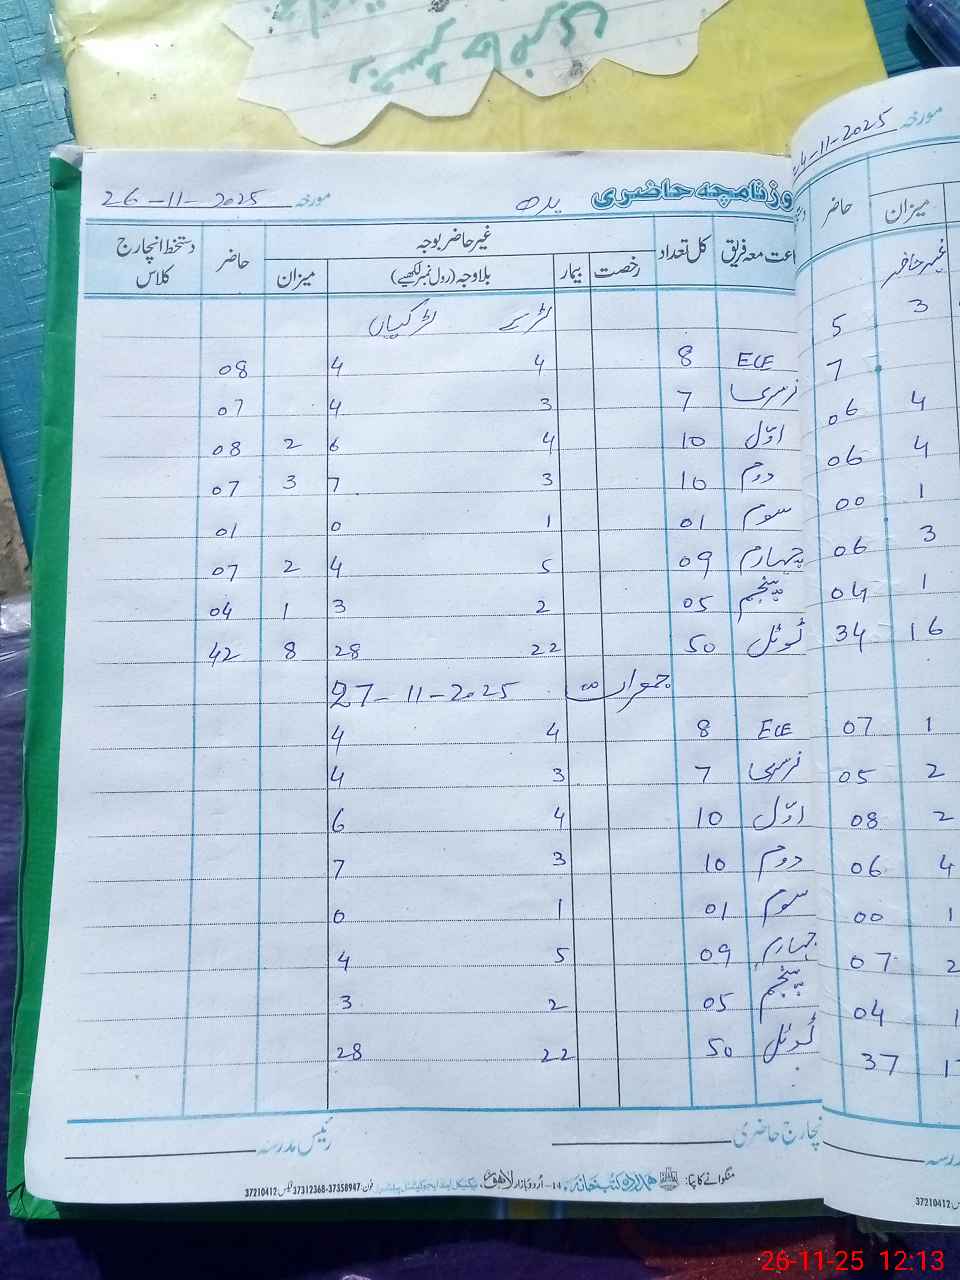 روزنامچہ حاضری بدھ مورخہ 26-11-2025
جماعت معہ فریق کل تعداد غیر حاضر بوجہ حاضر دستخط انچارج کلاس
رخصت بیمار بلاوجہ (رول نمبر لکھیے) میزان
لڑکے لڑکیاں
ECE 8 4 4 08
نرسری 7 3 4 07
اوّل 10 4 6 2 08
دوم 10 3 7 3 07
سوم 01 1 0 01
چہارم 09 5 4 2 07
پنجم 05 2 3 1 04
ٹوٹل 50 22 28 8 42
جمعرات 27-11-2025
ECE 8 4 4
نرسری 7 3 4
اوّل 10 4 6
دوم 10 3 7
سوم 01 1 0
چہارم 09 5 4
پنجم 05 2 3
ٹوٹل 50 22 28
انچارج حاضری رئیس مدرسہ
منگوانے کا پتہ: ہمدرد کتب خانہ 14-اردو بازار لاہور فون: 37358947-37312368 فیکس 37210412
مورخہ 24-11-2025
میزان حاضر
غیر حاضر
3 5
7
4 06
4 06
1 00
3 06
1 04
16 34
1 07
2 05
2 08
4 06
1 00
2 07
1 04
37
مدرسہ
37210412
26-11-25 12:13